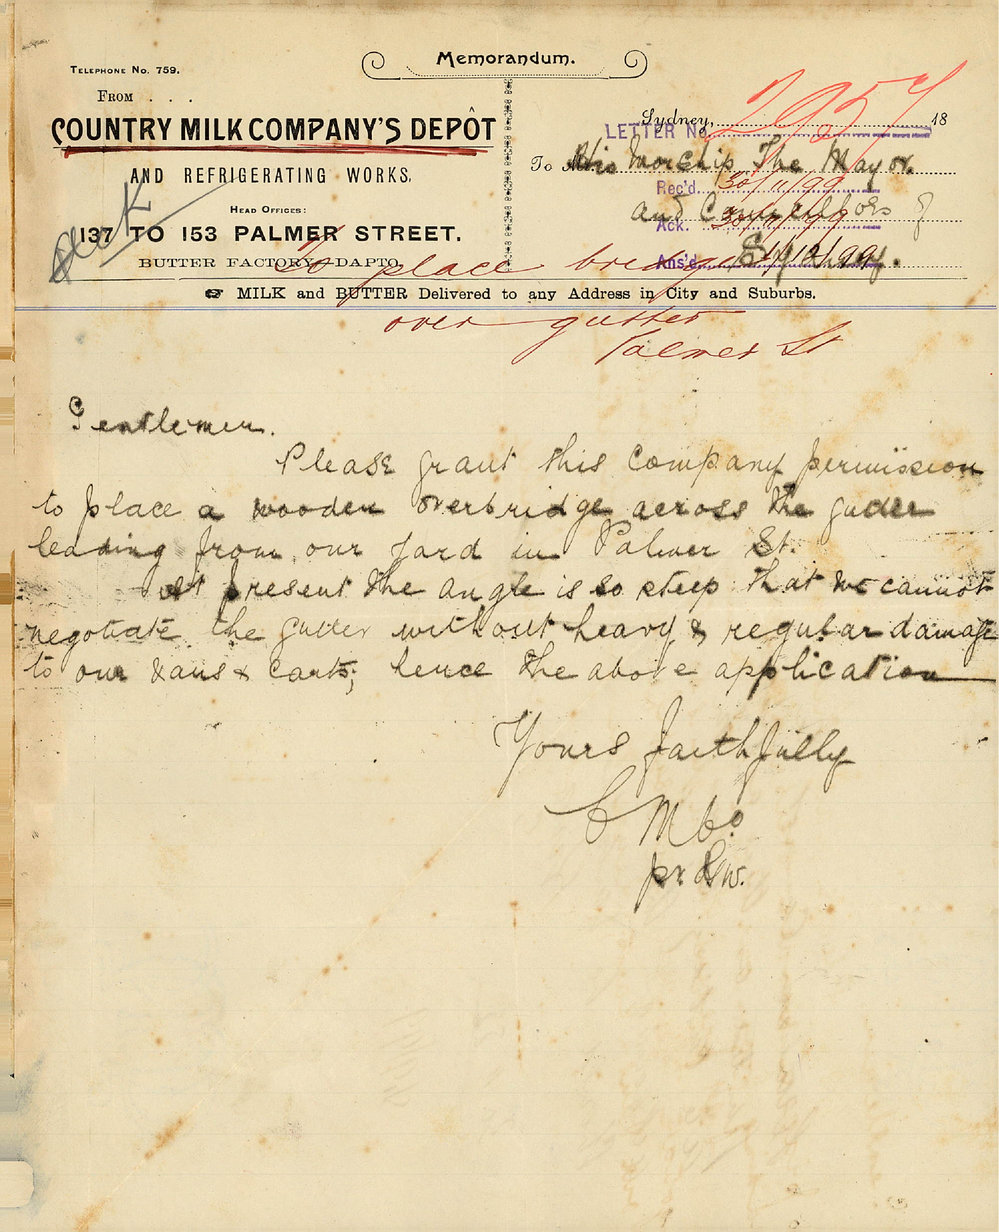 Memorandum.
TELEPHONE NO. 759.
FROM . . .
COUNTRY MILK COMPANY'S DEPÔT
AND REFRIGERATING WORKS.
HEAD OFFICES:
137 TO 153 PALMER STREET.
BUTTER FACTORY—DAPTO.
Sydney, 18
LETTER No 2957
To His Worship The Mayor.
Rec'd. 30/11/99
and Councillors of
Ack. 30/11/99
Sydney.
Ans'd.
☞ MILK and BUTTER Delivered to any Address in City and Suburbs.
To place bridge
over gutter
Palmer St
Gentlemen.
Please grant this Company permission
to place a wooden overbridge across the gutter
leading from our yard in Palmer St.
At present the angle is so steep that we cannot
negotiate the gutter without heavy & regular damage
to our vans & carts; hence the above application
Yours faithfully
C M Co